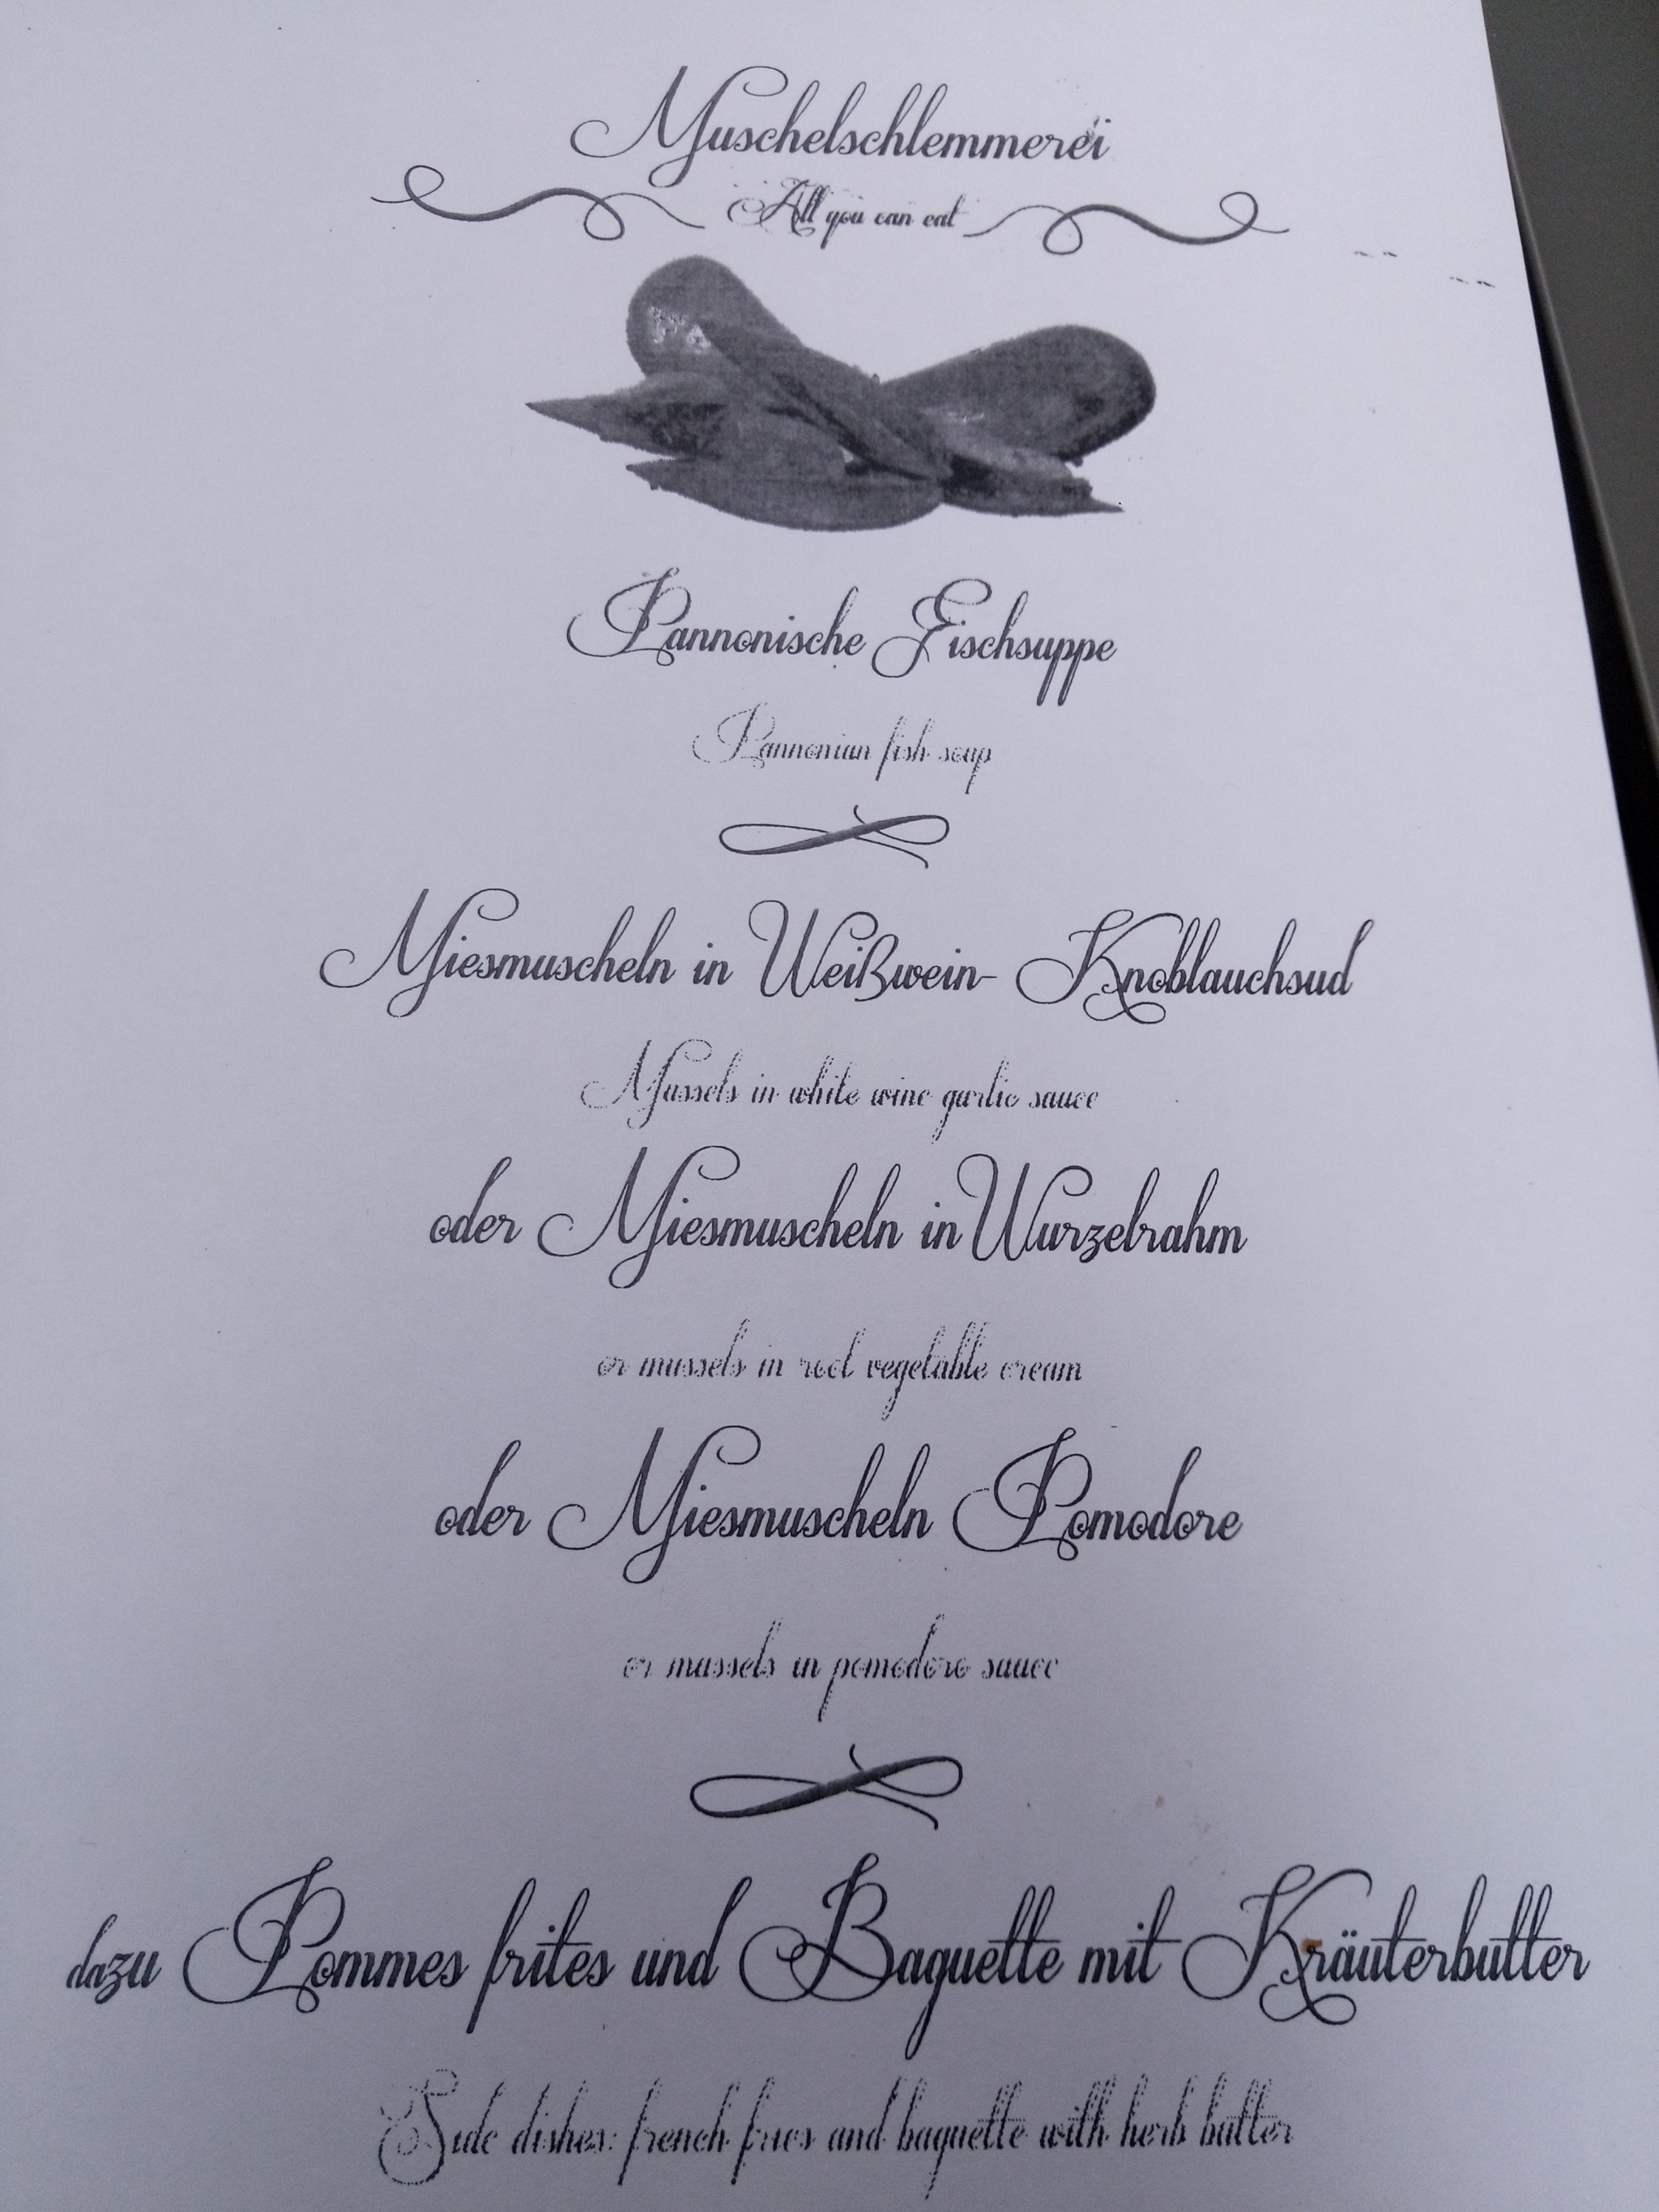 Muschelschlemmerei
All you can eat
Pannonische Fischsuppe
Pannonian fish soup
Miesmuscheln in Weißwein- Knoblauchsud
Mussels in white wine garlic sauce
oder Miesmuscheln in Wurzelrahm
or mussels in root vegetable cream
oder Miesmuscheln Pomodore
or mussels in pomodoro sauce
dazu Pommes frites und Baguette mit Kräuterbutter
Side dishes: french fries and baguette with herb butter